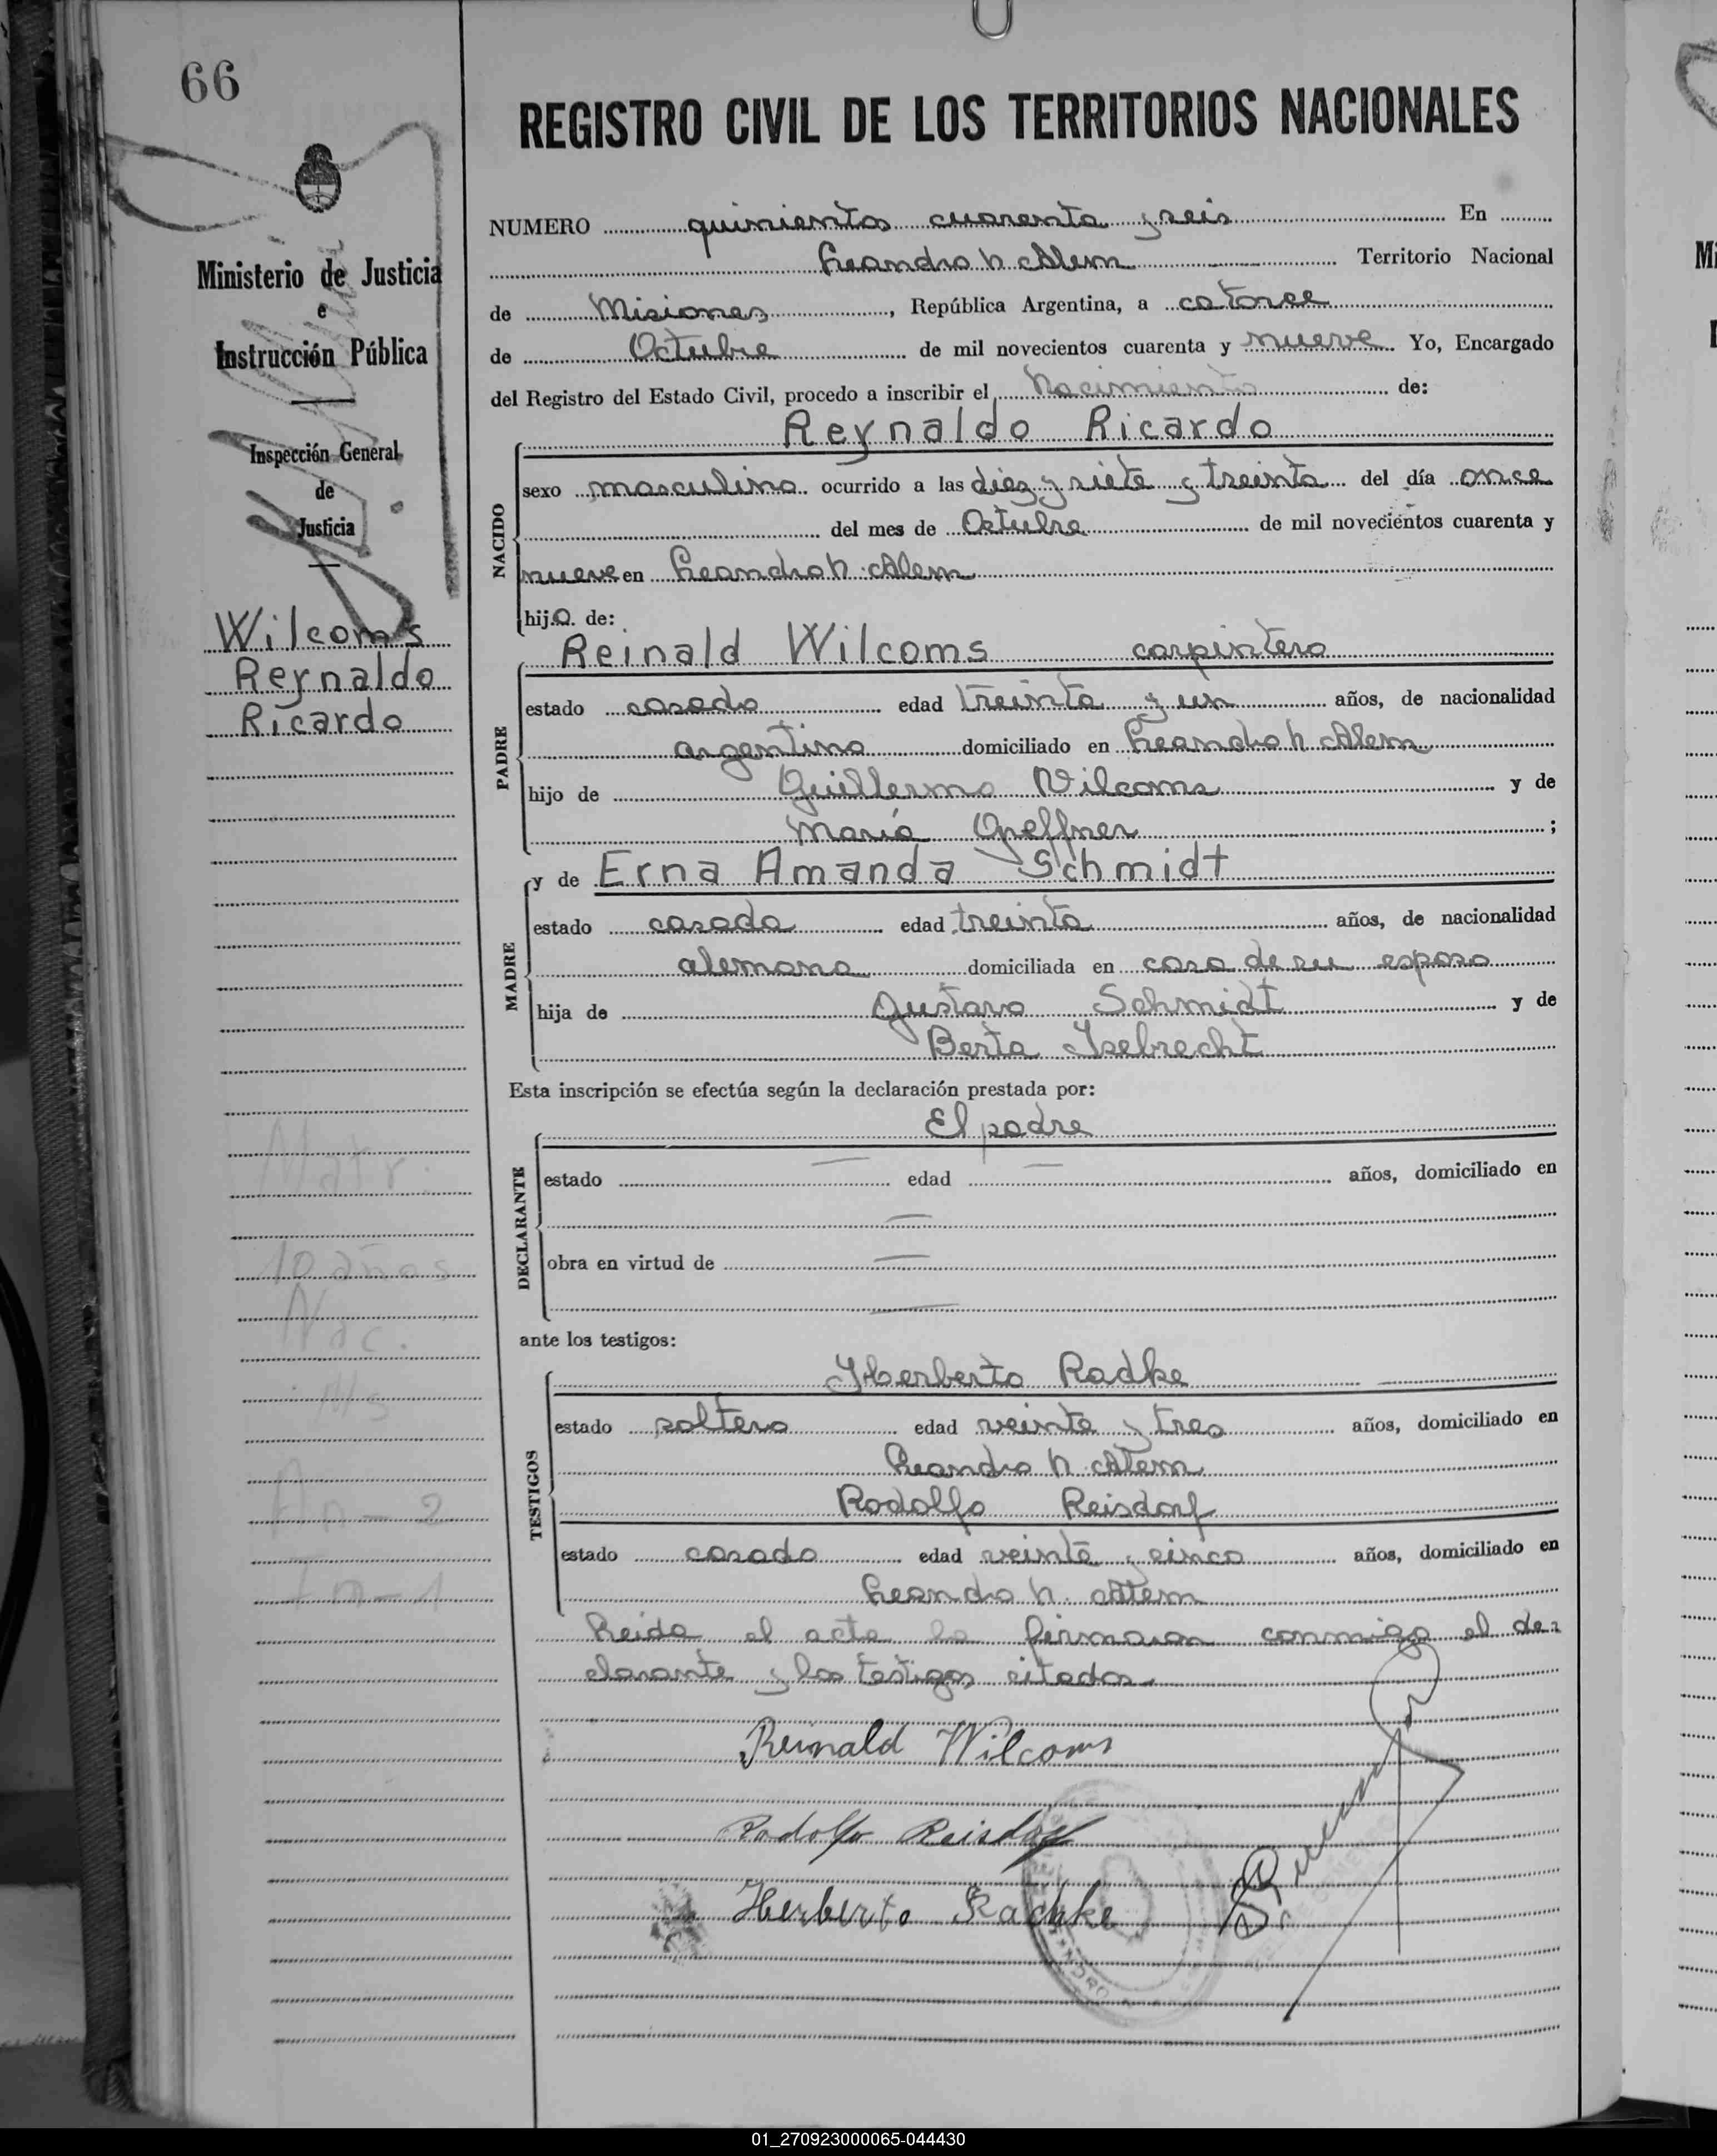 66
REGISTRO CIVIL DE LOS TERRITORIOS NACIONALES
Ministerio de Justicia
e
Instrucción Pública
Inspección General
de
Justicia
Wilcoms
Reynaldo
Ricardo
Matr.
10 años
Nac.
Ms
An-2
An-1
NUMERO quinientos cuarenta y seis En
Leandro N. Alem Territorio Nacional
de Misiones, República Argentina, a catorce
de Octubre de mil novecientos cuarenta y nueve Yo, Encargado
del Registro del Estado Civil, procedo a inscribir el Nacimiento de:
NACIDO
Reynaldo Ricardo
sexo masculino ocurrido a las diez y siete y treinta del día once
del mes de Octubre de mil novecientos cuarenta y
nueve en Leandro N. Alem
hijo. de:
PADRE
Reinald Wilcoms carpintero
estado casado edad treinta y un años, de nacionalidad
argentino domiciliado en Leandro N. Alem
hijo de Guillermo Wilcoms y de
María ;
MADRE
y de Erna Amanda Schmidt
estado casada edad treinta años, de nacionalidad
alemana domiciliada en casa de su esposo
hija de Gustavo Schmidt y de
Berta Isebrecht
Esta inscripción se efectúa según la declaración prestada por:
DECLARANTE
El padre
estado — edad — años, domiciliado en
—
obra en virtud de —
—
ante los testigos:
TESTIGOS
Herberto Radke
estado soltero edad veinte y tres años, domiciliado en
Leandro N. Alem
Rodolfo Reisdorf
estado casado edad veinte y cinco años, domiciliado en
Leandro N. Alem
Leida el acta la firmaron conmigo el de=
clarante y los testigos citados.
Reinald Wilcoms
Rodolfo Reisdorf
Herberto Radhke
01_270923000065-044430